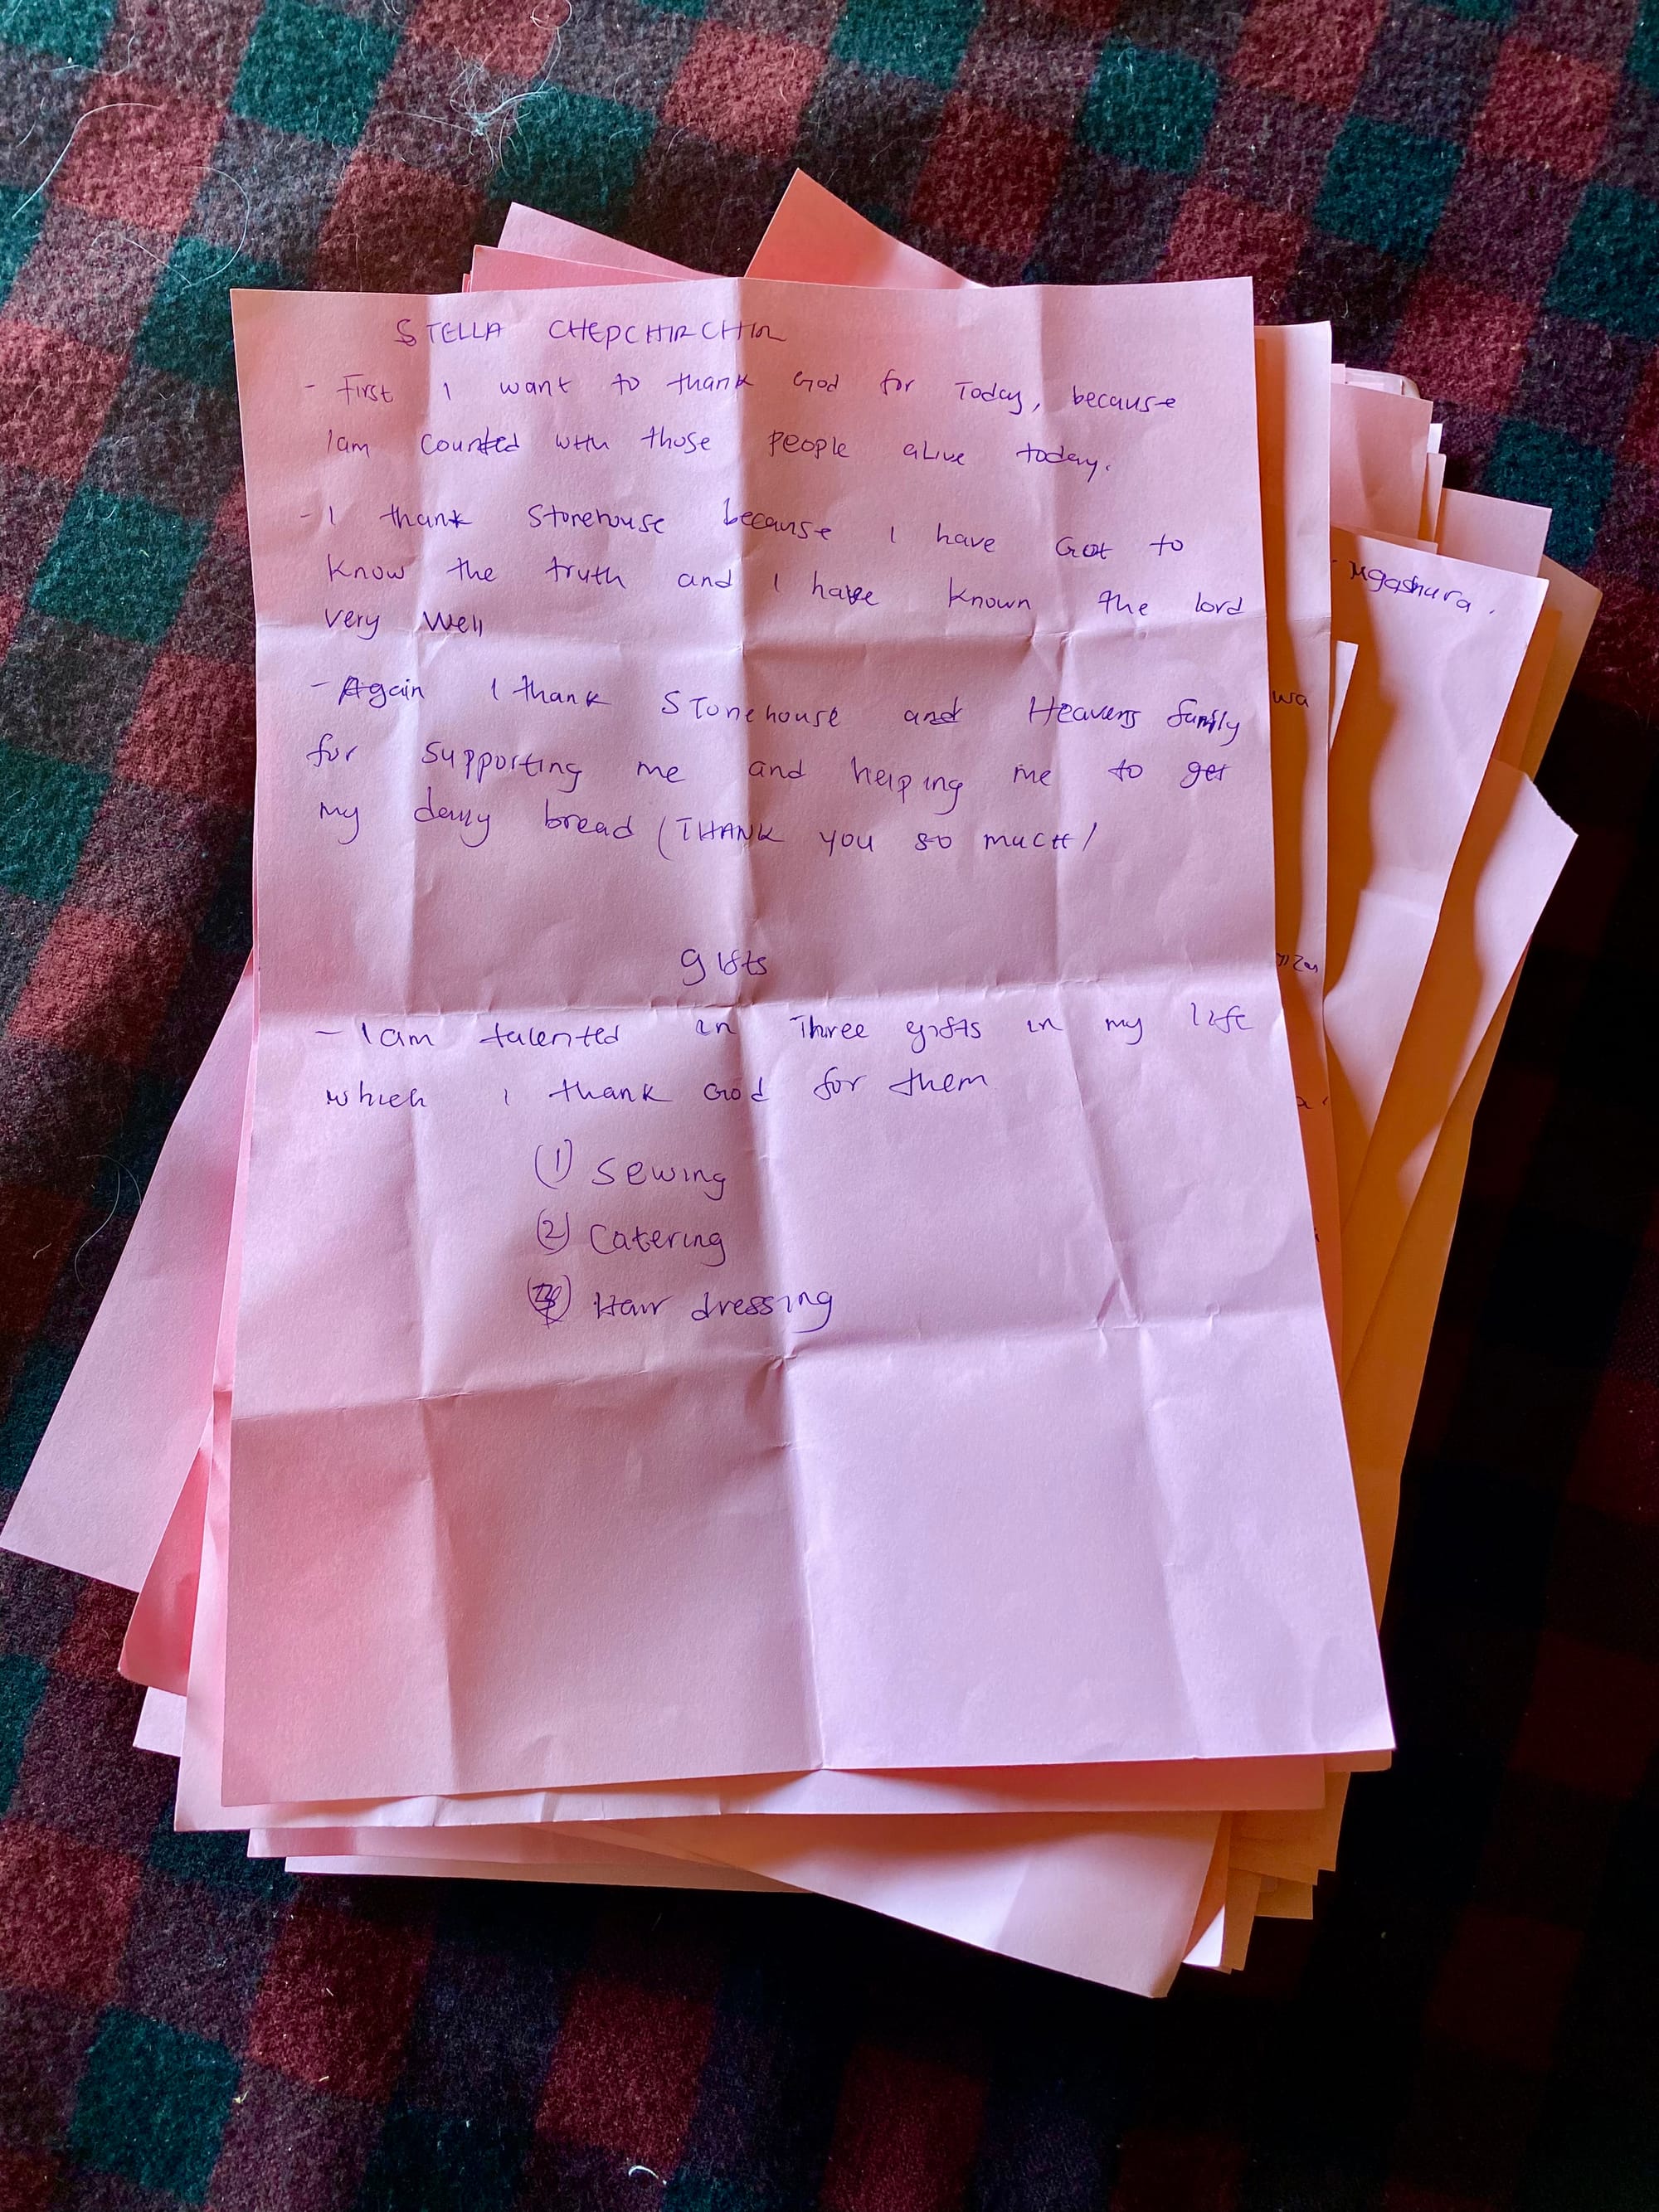 STELLA CHEPCHIRCHIR
- First I want to thank God for Today, because
I am counted with those people alive today.
- I thank Storehouse because I have Got to
know the truth and I have known the lord
very Well
- Again I thank STorehouse and Heavens family
for supporting me and helping me to get
my daily bread (THANK you so much/
gifts
- I am talented in Three gifts in my life
which I thank God for them
(1) Sewing
(2) Catering
(3) Hair dressing
wa